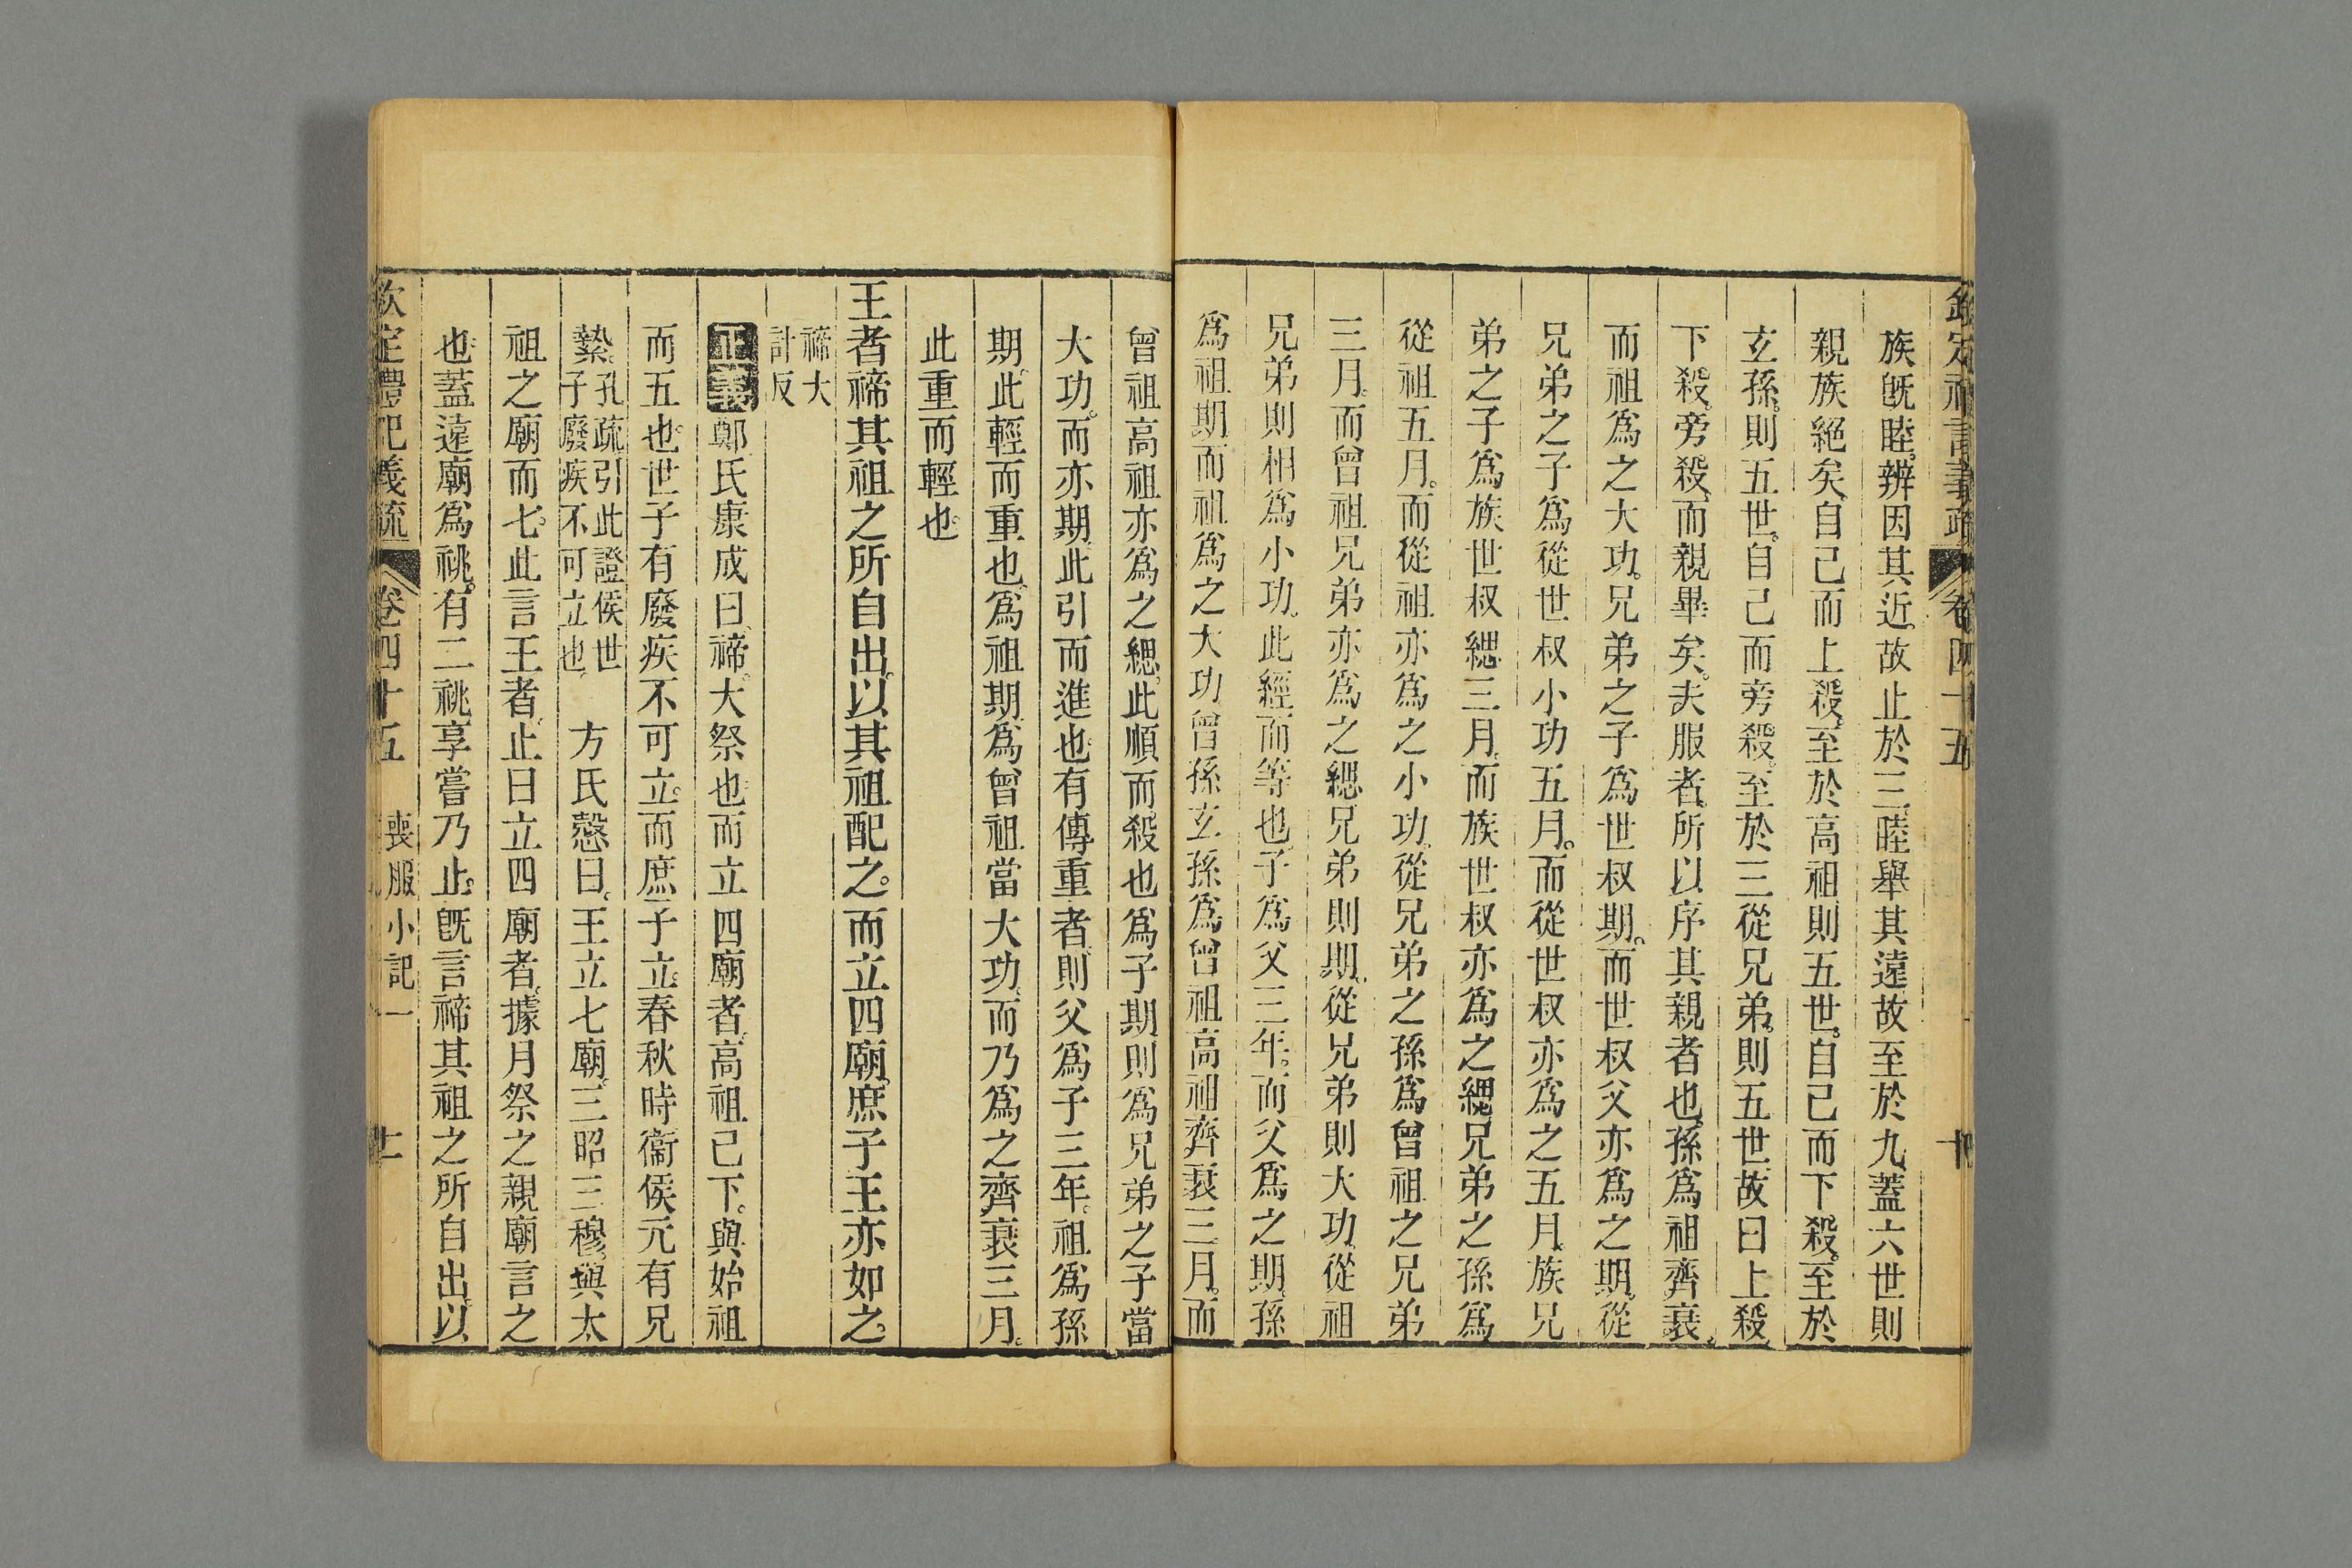 欽定禮記義疏 卷四十五 十
族旣睦。辨因其近。故止於三。睦舉其遠。故至於九。蓋六世則
親族絕矣。自己而上殺。至於高祖。則五世。自己而下殺。至於
玄孫。則五世。自己而旁殺。至於三從兄弟。則五世。故曰上殺
下殺。旁殺。而親畢矣。夫服者。所以序其親者也。孫爲祖齊衰。
而祖爲之大功。兄弟之子爲世叔期。而世叔父亦爲之期。從
兄弟之子爲從世叔小功五月。而從世叔亦爲之五月。族兄
弟之子爲族世叔緦三月。而族世叔亦爲之緦。兄弟之孫爲
從祖五月。而從祖亦爲之小功。從兄弟之孫爲曾祖之兄弟
三月。而曾祖兄弟亦爲之緦。兄弟則期。從兄弟則大功。從祖
兄弟則相爲小功。此經而等也。子爲父三年。而父爲之期。孫
爲祖期。而祖爲之大功。曾孫玄孫爲曾祖高祖齊衰三月。而
曾祖高祖亦爲之緦。此順而殺也。爲子期。則爲兄弟之子當
大功。而亦期。此引而進也。有傳重者。則父爲子三年。祖爲孫
期。此輕而重也。爲祖期。爲曾祖當大功。而乃爲之齊衰三月。
此重而輕也。
王者禘其祖之所自出。以其祖配之。而立四廟。庶子王亦如之。
禘大
計反
正義 鄭氏康成曰。禘。大祭也。而立四廟者。高祖已下。與始祖
而五也。世子有廢疾不可立。而庶子立。春秋時衞侯元有兄
縶。孔疏引此證侯世
子廢疾不可立也。 方氏慤曰。王立七廟。三昭三穆。與太
祖之廟而七。此言王者。止曰立四廟者。據月祭之親廟言之
也。蓋遠廟爲祧。有二祧享嘗乃止。旣言禘其祖之所自出。以
欽定禮記義疏 卷四十五 喪服小記一 十一